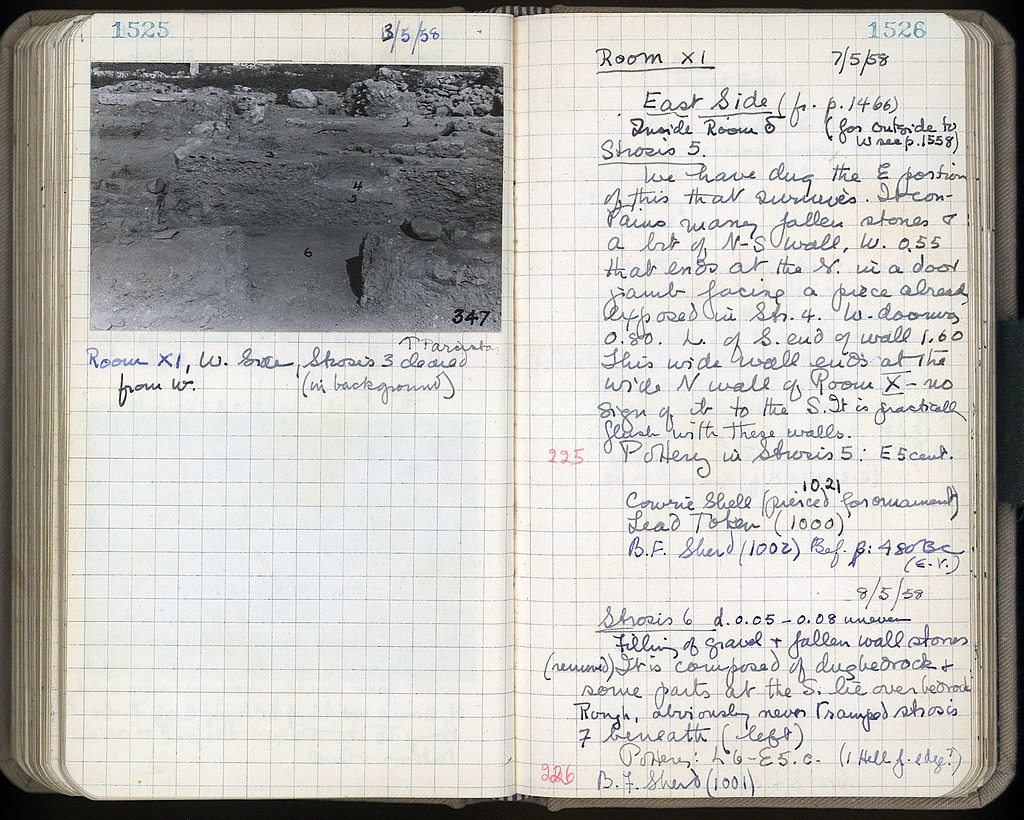 1525
3/5/58
3
4
5
6
347
Room XI, W. Side, Strosis 3 cleared
from W. (in background)
1526
Room XI 7/5/58
East Side (fr. p. 1466)
Inside Room (for outside to
W see p. 1558)
Strosis 5.
We have dug the E portion
of this that survives. It con-
tains many fallen stones &
a bit of N-S wall, W. 0.55
that ends at the N. in a door
jamb facing a piece already
exposed in Str. 4. W. doorway
0.80. L. of S. end of wall 1.60
This wide wall ends at the
wide N wall of Room X - no
sign of it to the S. It is practically
flush with these walls.
225 Pottery in Strosis 5: E 5 cent.
10.21
Cowrie Shell (pierced for ornament)
Lead Token (1000)
B.F. Sherd (1002) Bef. p: 480 BC
(E.V.)
8/5/58
Strosis 6 d. 0.05 - 0.08 uneven
Filling of gravel + fallen wall stones
(removed) It is composed of dug bedrock +
some parts at the S. lie over bedrock
Rough, obviously never tramped strosis
7 beneath (left)
Pottery: L 6 - E 5. c. (1 Hell f. edge?)
226 B.F. Sherd (1001)